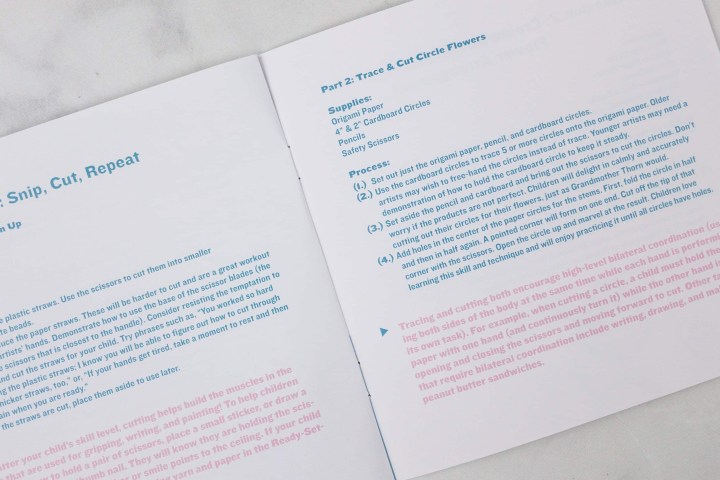 : Snip, Cut, Repeat
m Up
e plastic straws. Use the scissors to cut them into smaller
fe beads.
duce the paper straws. These will be harder to cut and are a great workout
artists' hands. Demonstrate how to use the base of the scissor blades (the
e scissors that is closest to the handle). Consider resisting the temptation to
nd cut the straws for your child. Try phrases such as, "You worked so hard
ng the plastic straws; I know you will be able to figure out how to cut through
hicker straws, too," or, "If your hands got tired, take a moment to rest and then
ain when you are ready."
the straws are cut, place them aside to use later.
tter your child's skill level, cutting helps build the muscles in the
s that are used for gripping, writing, and painting! To help children
to hold a pair of scissors, place a small sticker, or draw a
humb nail. They will know they are holding the scis-
or smile points to the ceiling. If your child
ng yarn and paper in the Ready-Set-
Part 2: Trace & Cut Circle Flowers
Supplies:
Origami Paper
4" & 2" Cardboard Circles
Pencils
Safety Scissors
Process:
(1.) Set out just the origami paper, pencil, and cardboard circles.
(2.) Use the cardboard circles to trace 5 or more circles onto the origami paper. Older
artists may wish to free-hand the circles instead of trace. Younger artists may need a
demonstration of how to hold the cardboard circle to keep it steady.
(3.) Set aside the pencil and cardboard and bring out the scissors to cut the circles. Don't
worry if the products are not perfect. Children will delight in calmly and accurately
cutting out their circles for their flowers, just as Grandmother Thorn would.
(4.) Add holes in the center of the paper circles for the stems. First, fold the circle in half
and then in half again. A pointed corner will form on one end. Cut off the tip of that
corner with the scissors. Open the circle up and marvel at the result. Children love
learning this skill and technique and will enjoy practicing it until all circles have holes.
Tracing and cutting both encourage high-level bilateral coordination (us
ing both sides of the body at the same time while each hand is perform
its own task). For example, when cutting a circle, a child must hold the
paper with one hand (and continuously turn it) while the other hand is
opening and closing the scissors and moving forward to cut. Other
that require bilateral coordination include writing, drawing, and
peanut butter sandwiches.